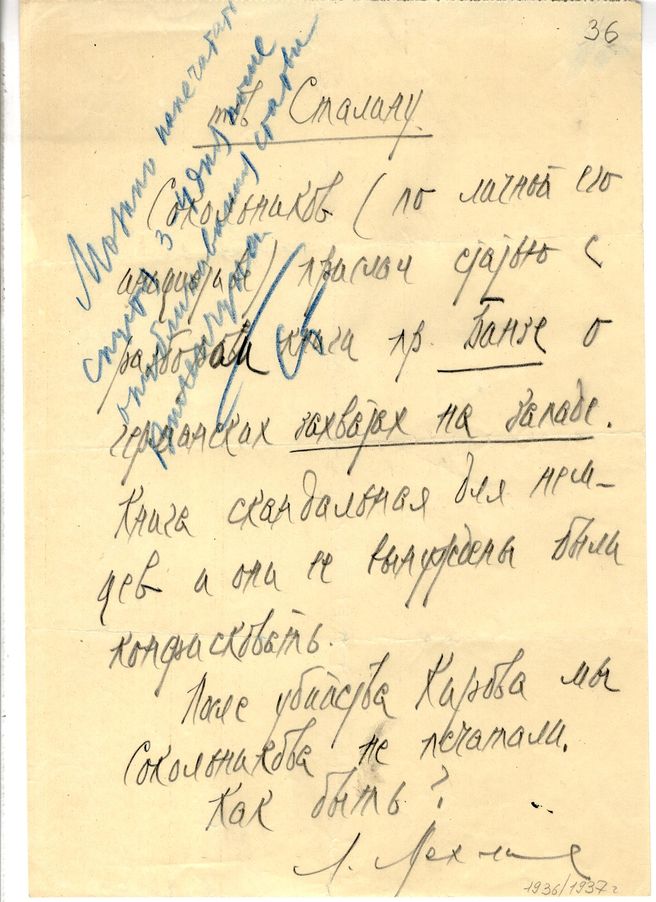 36
тов Сталину.
Сокольников (по личной его
инициативе) прислал статью с
разбором книги пр. Банзе о
германских захватах на западе.
Книга скандальная для нем-
цев и они ее вынуждены были
конфисковать.
После убийства Кирова мы
Сокольникова не печатали.
Как быть?
Л. Мехлис
1936/1937 г
Можно напечатать
спустя 3 после
опубликования статьи